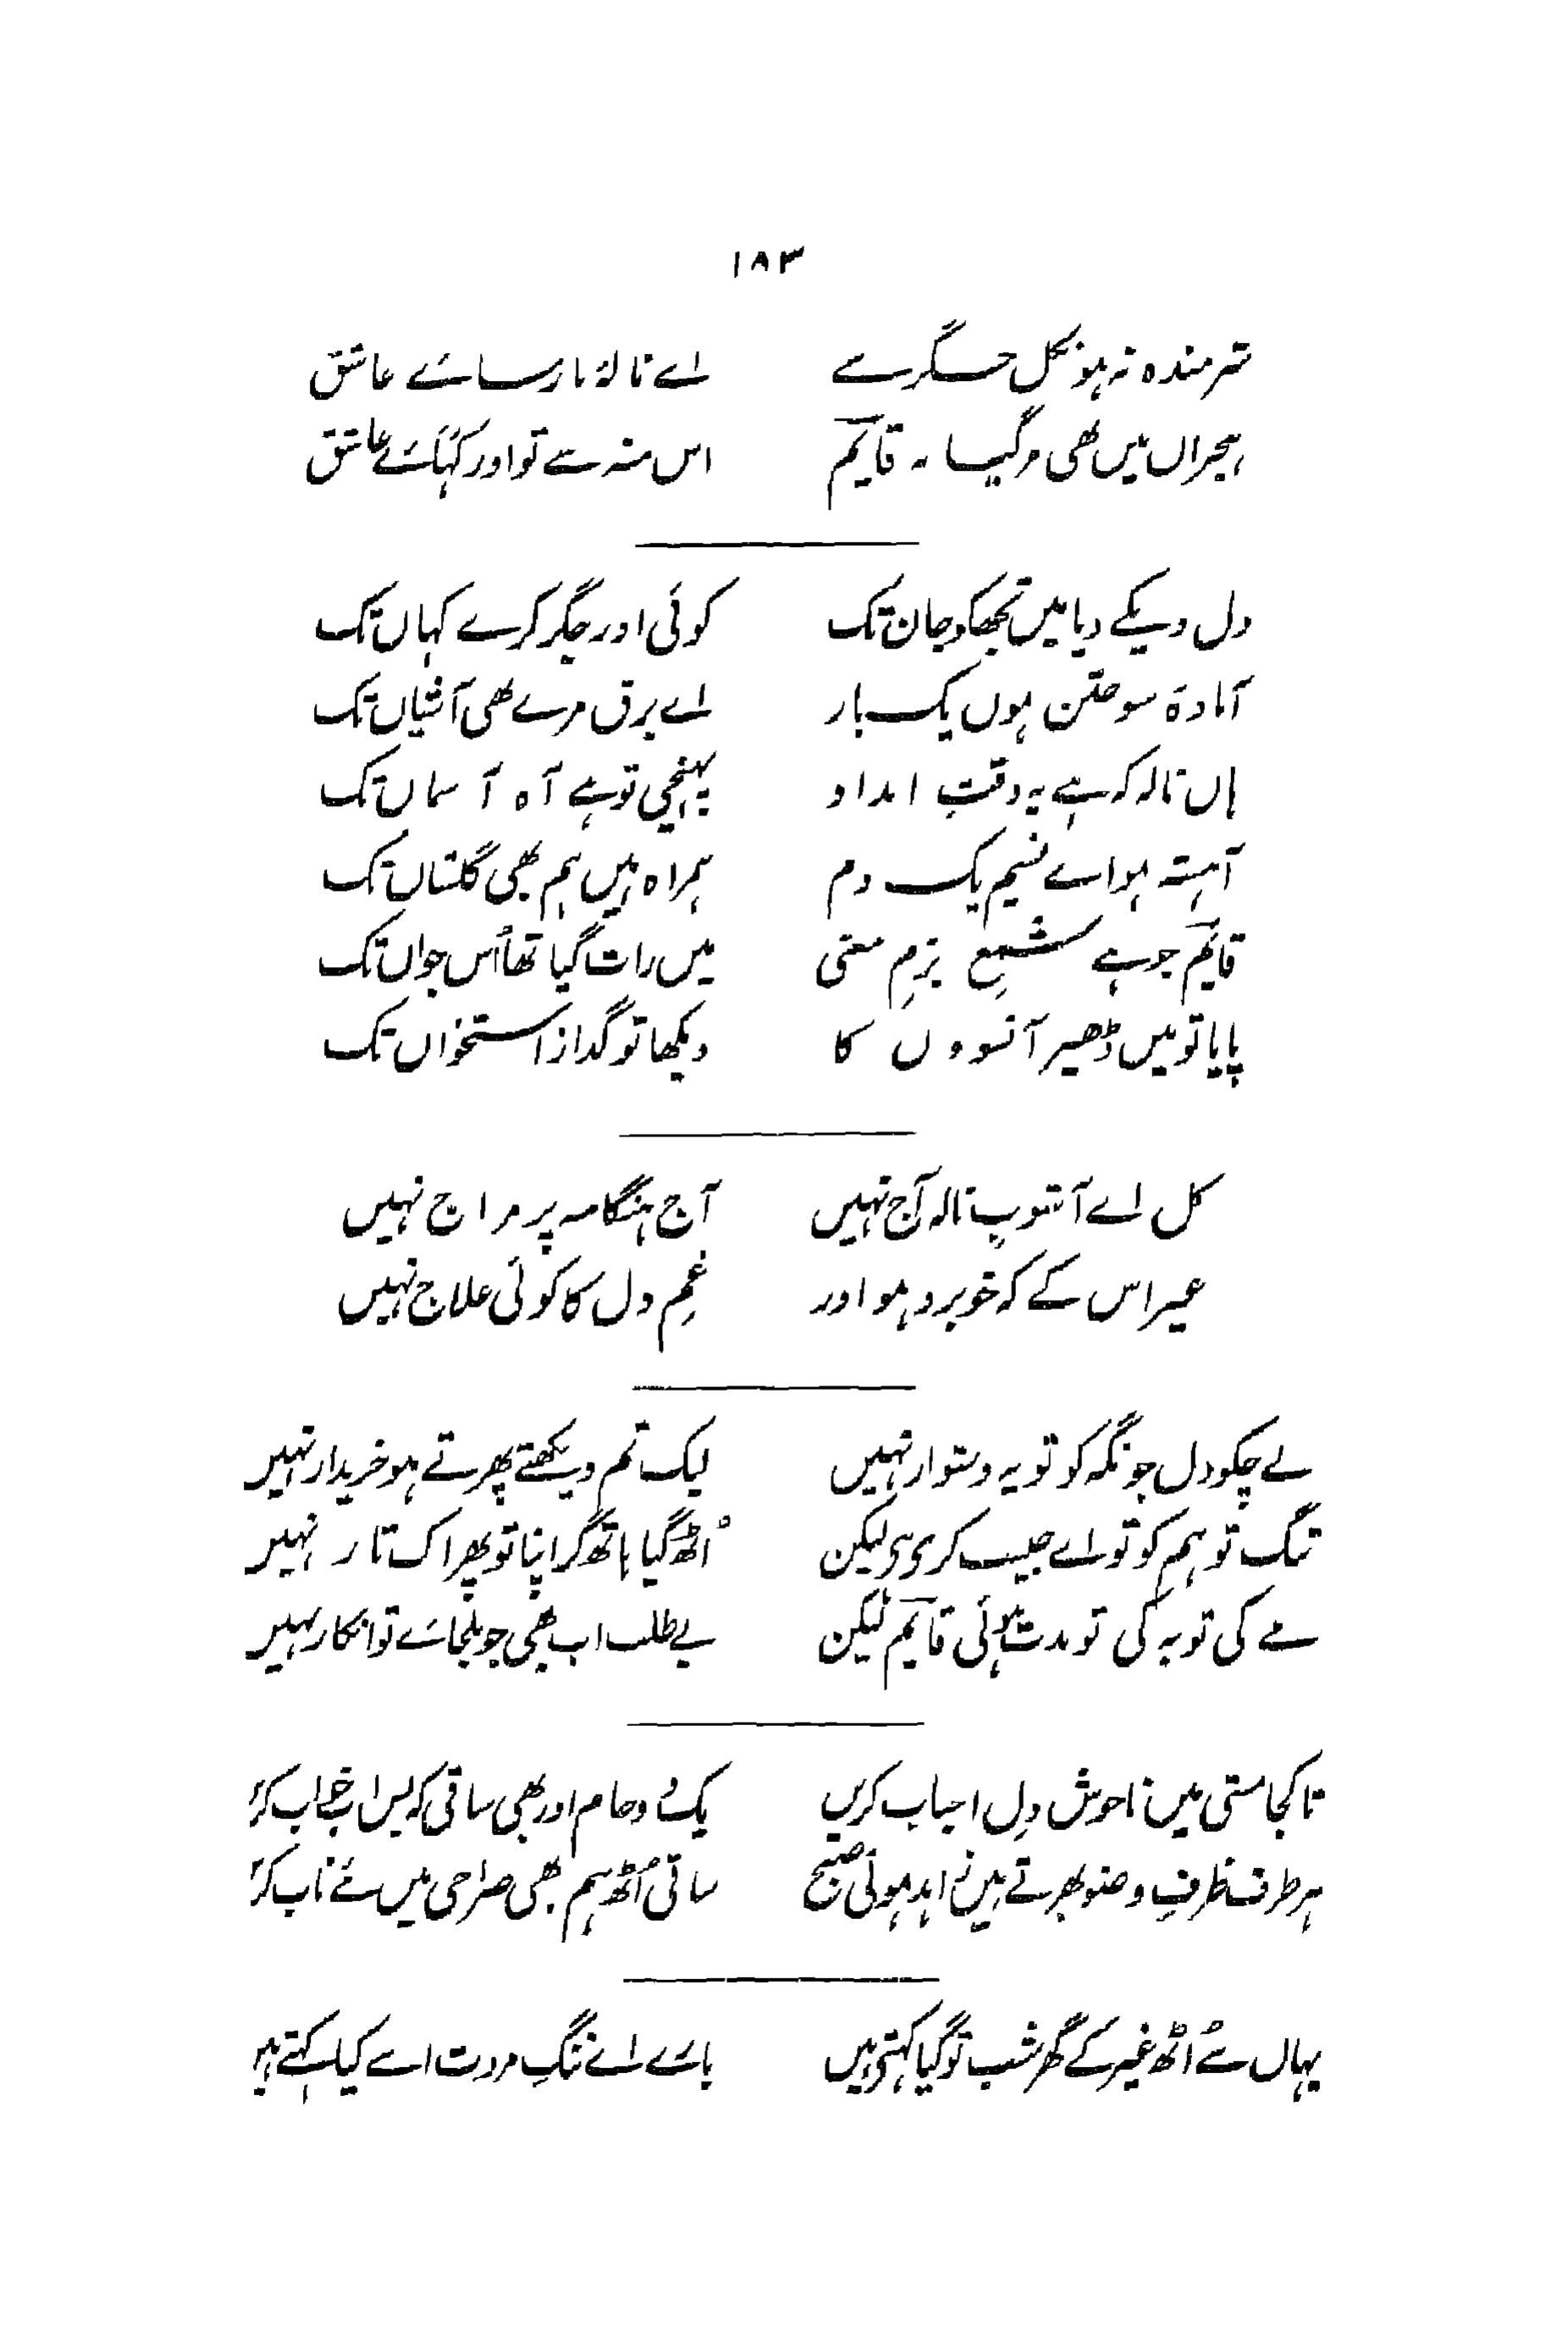 ۱۸۳
شرمندہ نہ ہو نکل جگر سے اے نالۂ نارسائے عاشق
ہجراں میں بھی مر گیا نہ قایم اس منہ سے تو اور کہائے عاشق
دل دیکے دیا میں تجھکو جان تک کوئی اور جگر کرے کہاں تک
آمادۂ سوختن ہوں یک بار اے برق مرے بھی آشیاں تک
ہاں نالہ کہ ہے یہ وقتِ امداد پہنچی تو ہے آہ آسماں تک
آہستہ ہو اے نسیم یک دم ہمراہ ہیں ہم بھی گلستاں تک
قایم جو ہے شمعِ بزمِ معنی میں رات گیا تھا اُس جواں تک
پایا تو میں ڈھیر آنسووں کا دیکھا تو گداز استخواں تک
کل اے آشوبِ نالہ آج نہیں آج ہنگامہ پر مزاج نہیں
غیر اس کے کہ خوبرو ہو اور غمِ دل کا کوئی علاج نہیں
لے چکو دل جو نگہ کو تو یہ دشوار نہیں لیک تم دیکھتے پھرتے ہو خریدار نہیں
تنگ تو ہم کو تو اے جیب کری ہی لیکن اُٹھ گیا ہاتھ گر اپنا تو پھر اک تار نہیں
مے کی توبہ کی تو مدت ہوئی قایم لیکن بے طلب اب بھی جو ملجائے تو انکار نہیں
تا کجا مستی میں ناخوش دلِ احباب کریں یک دو جام اور بھی ساقی کہ بس اب خواب کر
ہر طرف ظرفِ وضو بھرتے ہیں زاہد ہوئی صبح ساقی اُٹھ ہم بھی صراحی میں مئے ناب کر
یہاں سے اُٹھ غیر کے گھر شب تو گیا کہتی ہیں بارے اے ننگِ مروت اسے کیا کہتے ہیں